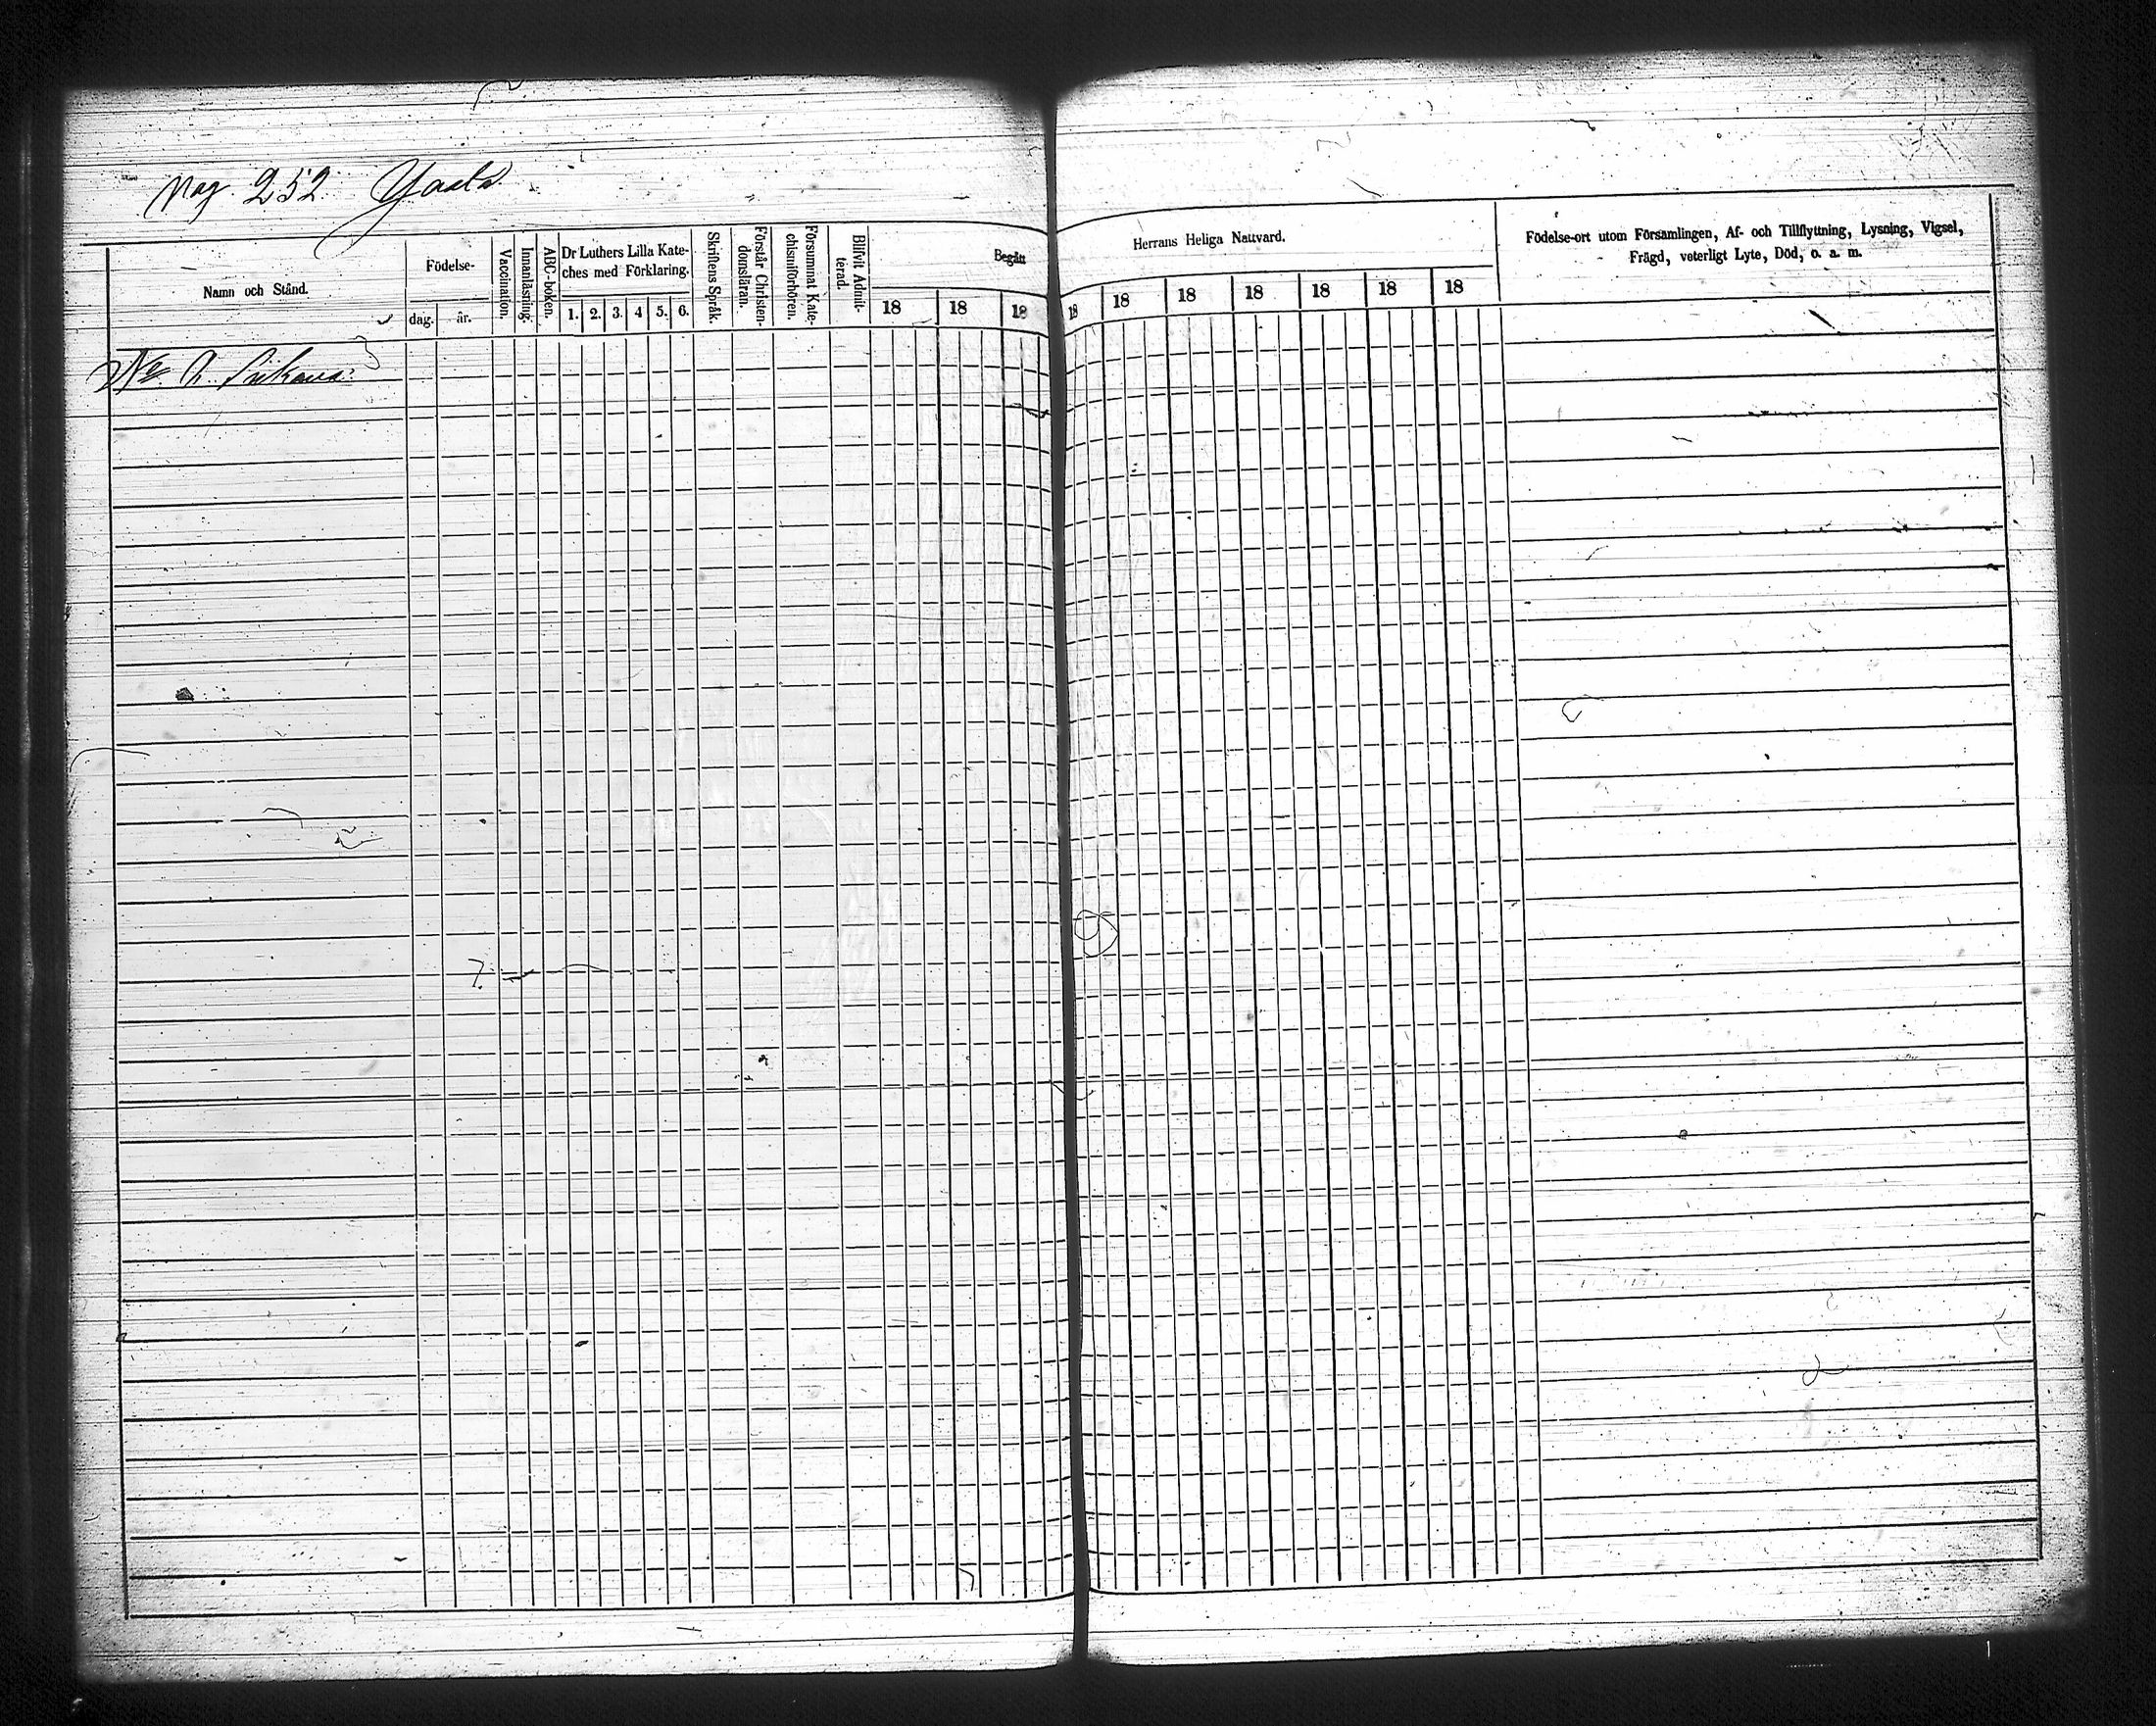 252.
Namn och Stånd.
Födelse-
dag.
år.
Vaccination.
Innanläsning.
ABC-boken.
Dr Luthers Lilla Kate-
ches med Förklaring.
1. 2. 3. 4 5. 6.
Skriftens Språk.
Förstår Christen-
domsläran.
Försummat Kate-
chismiförhören.
Blifvit Admit-
terad.
Begått
18 18 18
Herrans Heliga Nattvard.
18 18 18 18 18 18 18
Födelse-ort utom Församlingen, Af- och Tillflyttning, Lysning, Vigsel,
Frägd, veterligt Lyte, Död, o. a. m.